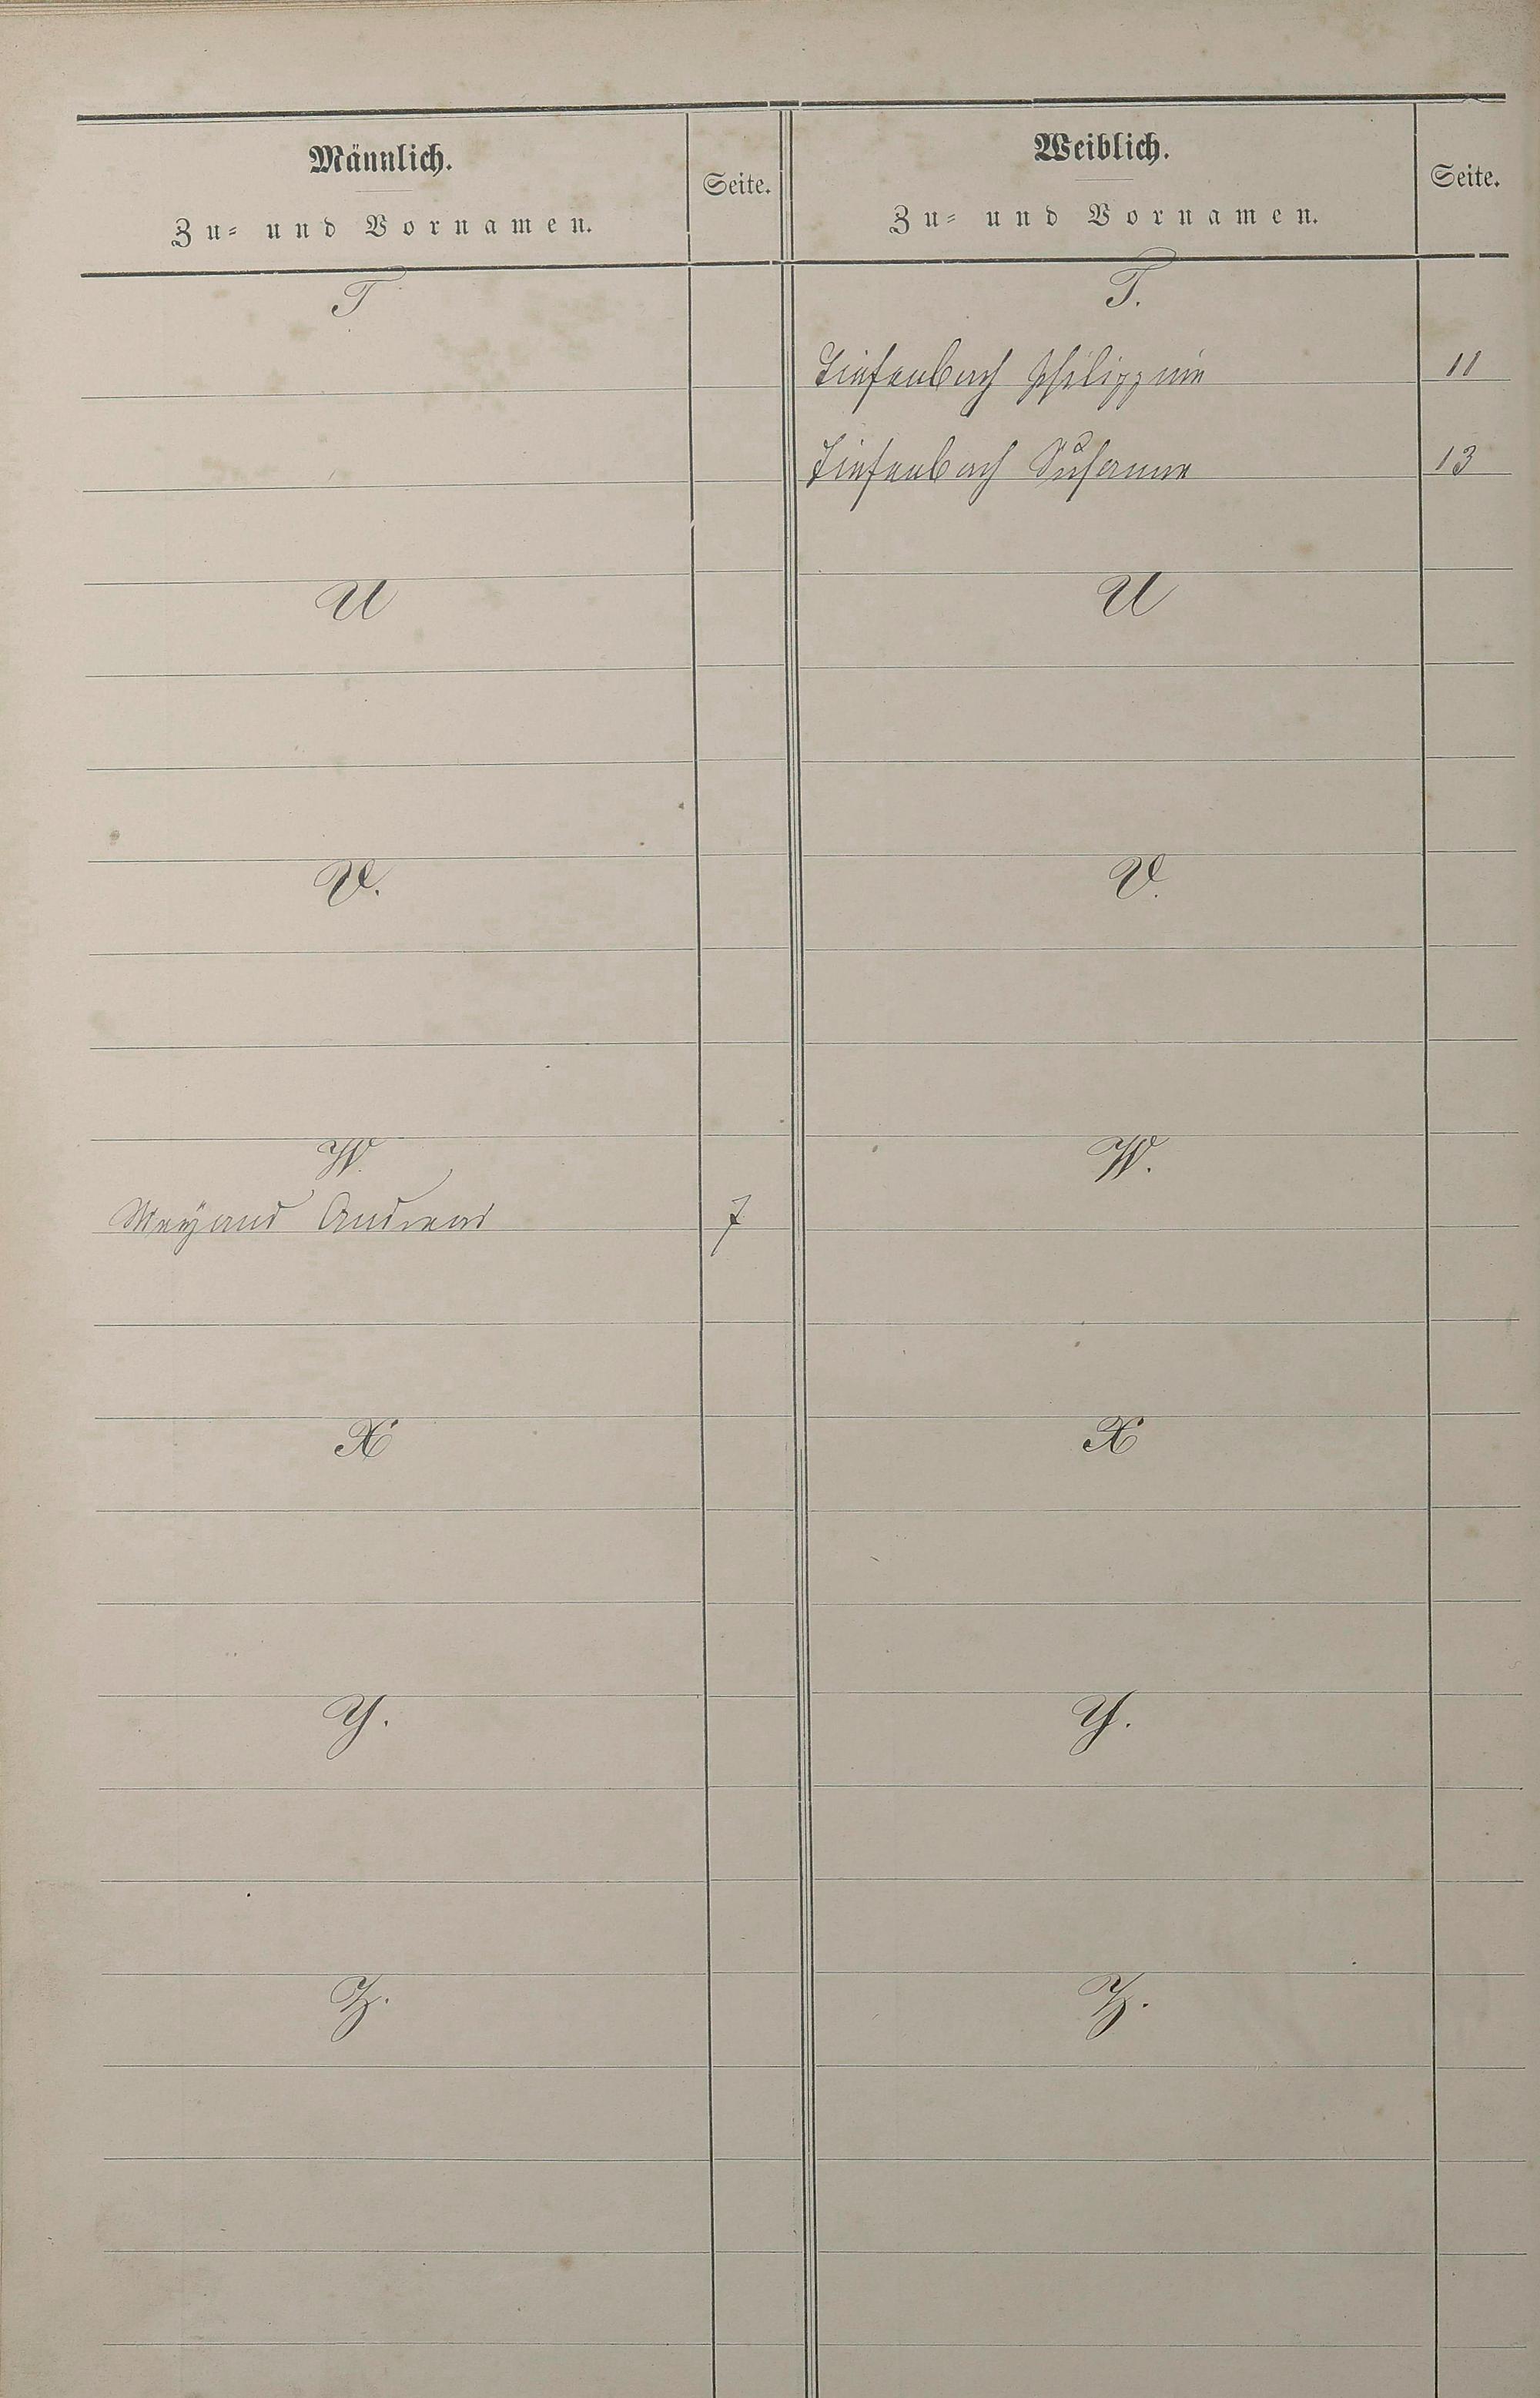 Männlich.
Zu- und Vornamen.
Seite.
Weiblich.
Zu- und Vornamen.
Seite.
T
T.
Tiefenbach Philippine
11
Tiefenbach Susanne
13
U
U
V.
V.
W.
W.
Weyand Andreas
7
X
X
Y.
Y.
Z.
Z.